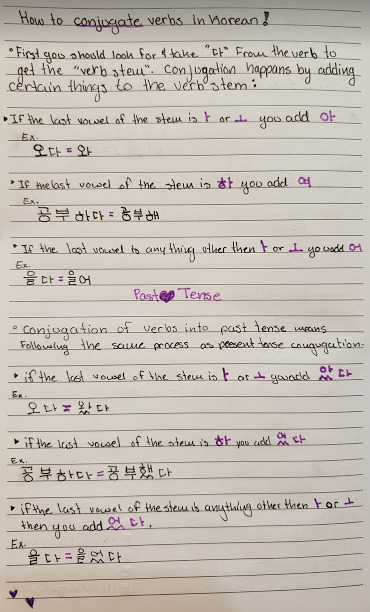 How to conjugate verbs in Korean!
• First you should look for & take "다" From the verb to
get the "verb stem". Conjugation happens by adding
certain things to the verb stem:
▸ If the last vowel of the stem is ㅏ or ㅗ you add 아
Ex.
오다 = 와
▸ If the last vowel of the stem is 하 you add 여
Ex.
공부하다 = 공부해
▸ If the last vowel is anything other then ㅏ or ㅗ you add 어
Ex.
읃다 = 읃어
Past Tense
◦ Conjugation of verbs into past tense means
Following the same process as present tense congugation.
▸ if the last vowel of the stem is ㅏ or ㅗ you add 았다
Ex.
오다 = 왔다
▸ if the last vowel of the stem is 하 you add 였다
Ex.
공부하다 = 공부했다
▸ if the last vowel of the stem is anything other then ㅏ or ㅗ
then you add 었다.
Ex.
을다 = 을었다